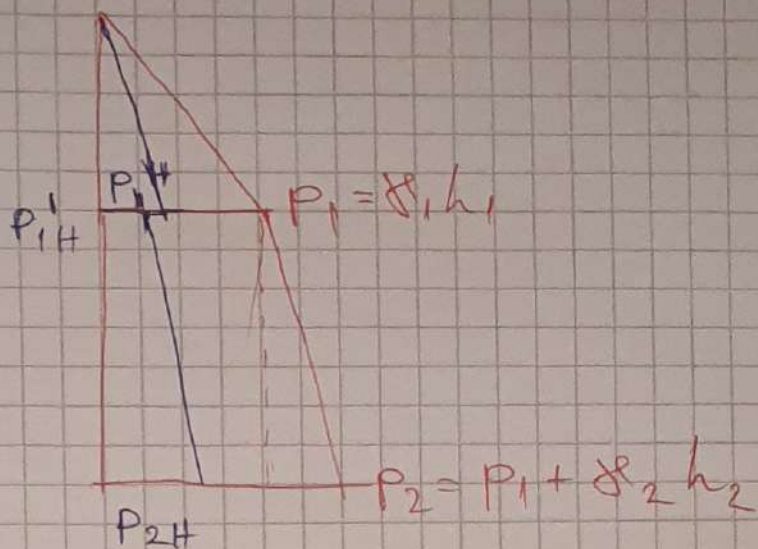 P₁H
P₁'H P₁ = γ₁h₁
P₂ = P₁ + γ₂h₂
P₂H